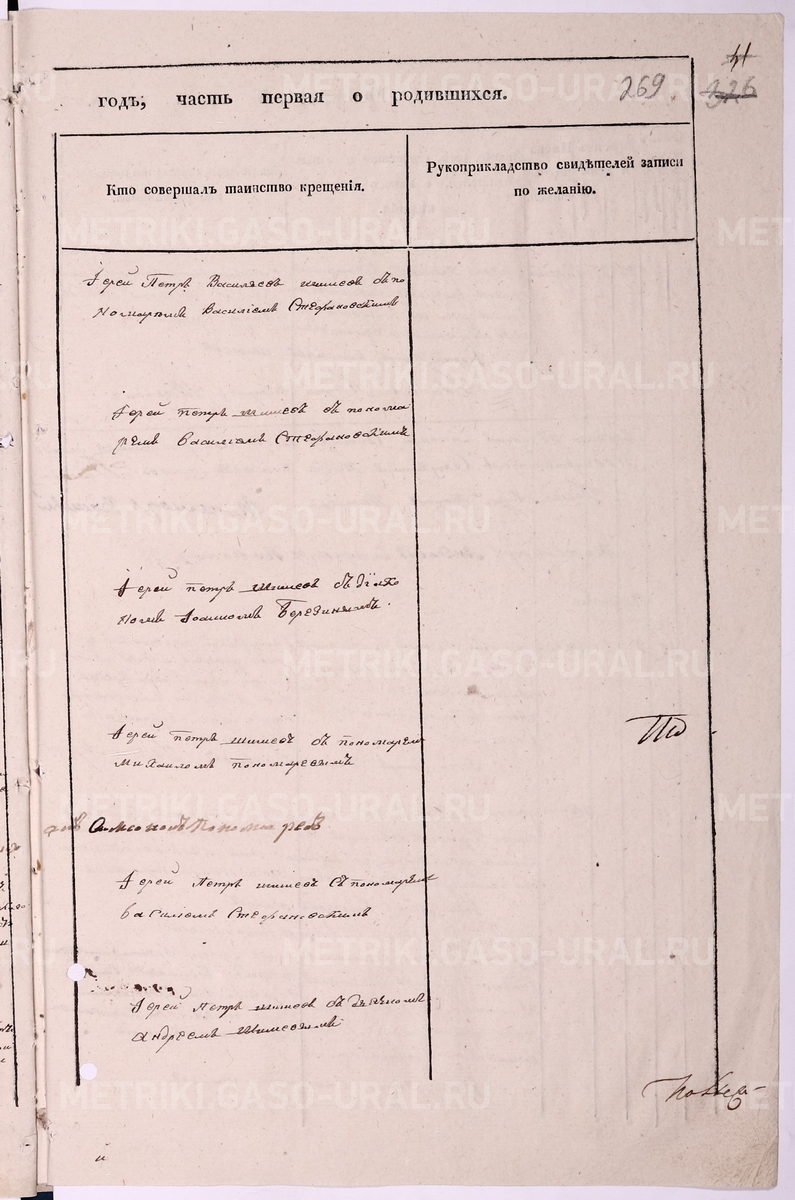 41
269 226
годъ, часть первая о родившихся.
Кто совершалъ таинство крещенія.
Рукоприкладство свидѣтелей записи
по желанію.
Іерей Петръ Василъевъ Шишевъ съ по
номаремъ Василіемъ Стефановскимъ
Іерей Петръ Шишевъ съ понома
ремъ Василіемъ Стефановскимъ
Іерей Петръ Шишевъ съ діако
номъ Іоанномъ
Іерей Петръ Шишевъ съ пономаремъ
Михаиломъ Пономаревымъ
Пономаревъ
Іерей Петръ Шишевъ съ пономаремъ
Василіемъ Стефановскимъ
Іерей Петръ Шишевъ съ дьячкомъ
Андреемъ Шишевымъ
METRIKI.GASO-URAL.RU